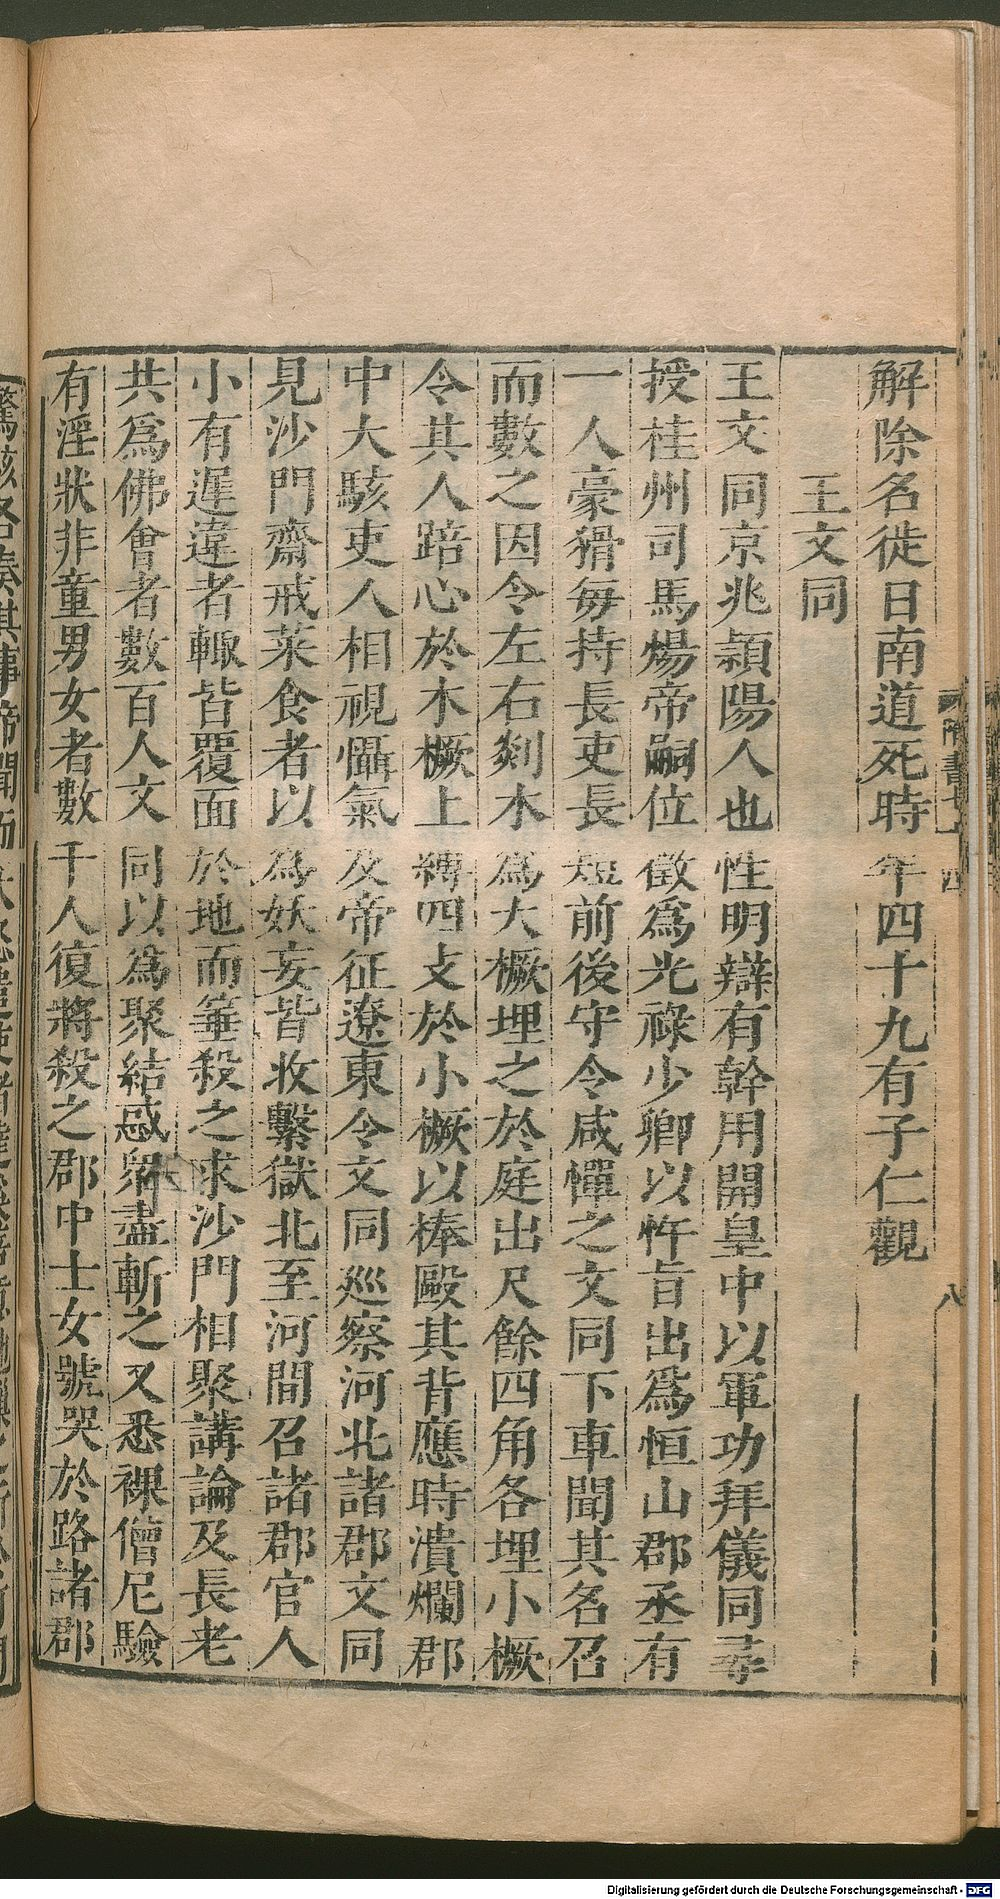 解除名徙日南道死時年四十九有子仁觀
王文同
王文同京兆頴陽人也性明辯有幹用開皇中以軍功拜儀同尋
授桂州司馬煬帝嗣位徵爲光祿少卿以忤旨出爲恒山郡丞有
一人豪猾每持長吏長短前後守令咸憚之文同下車聞其名召
而數之因令左右剡木爲大橛埋之於庭出尺餘四角各埋小橛
令其人踣心於木橛上縛四支於小橛以棒毆其背應時潰爛郡
中大駭吏人相視懾氣及帝征遼東令文同巡察河北諸郡文同
見沙門齋戒菜食者以爲妖妄皆收繫獄北至河間召諸郡官人
小有遲違者輙皆覆面於地而箠殺之求沙門相聚講論及長老
共爲佛會者數百人文同以爲聚結惑衆盡斬之又悉裸僧尼驗
有淫狀非童男女者數千人復將殺之郡中士女號哭於路諸郡
隋書七十四
八
Digitalisierung gefördert durch die Deutsche Forschungsgemeinschaft - DFG